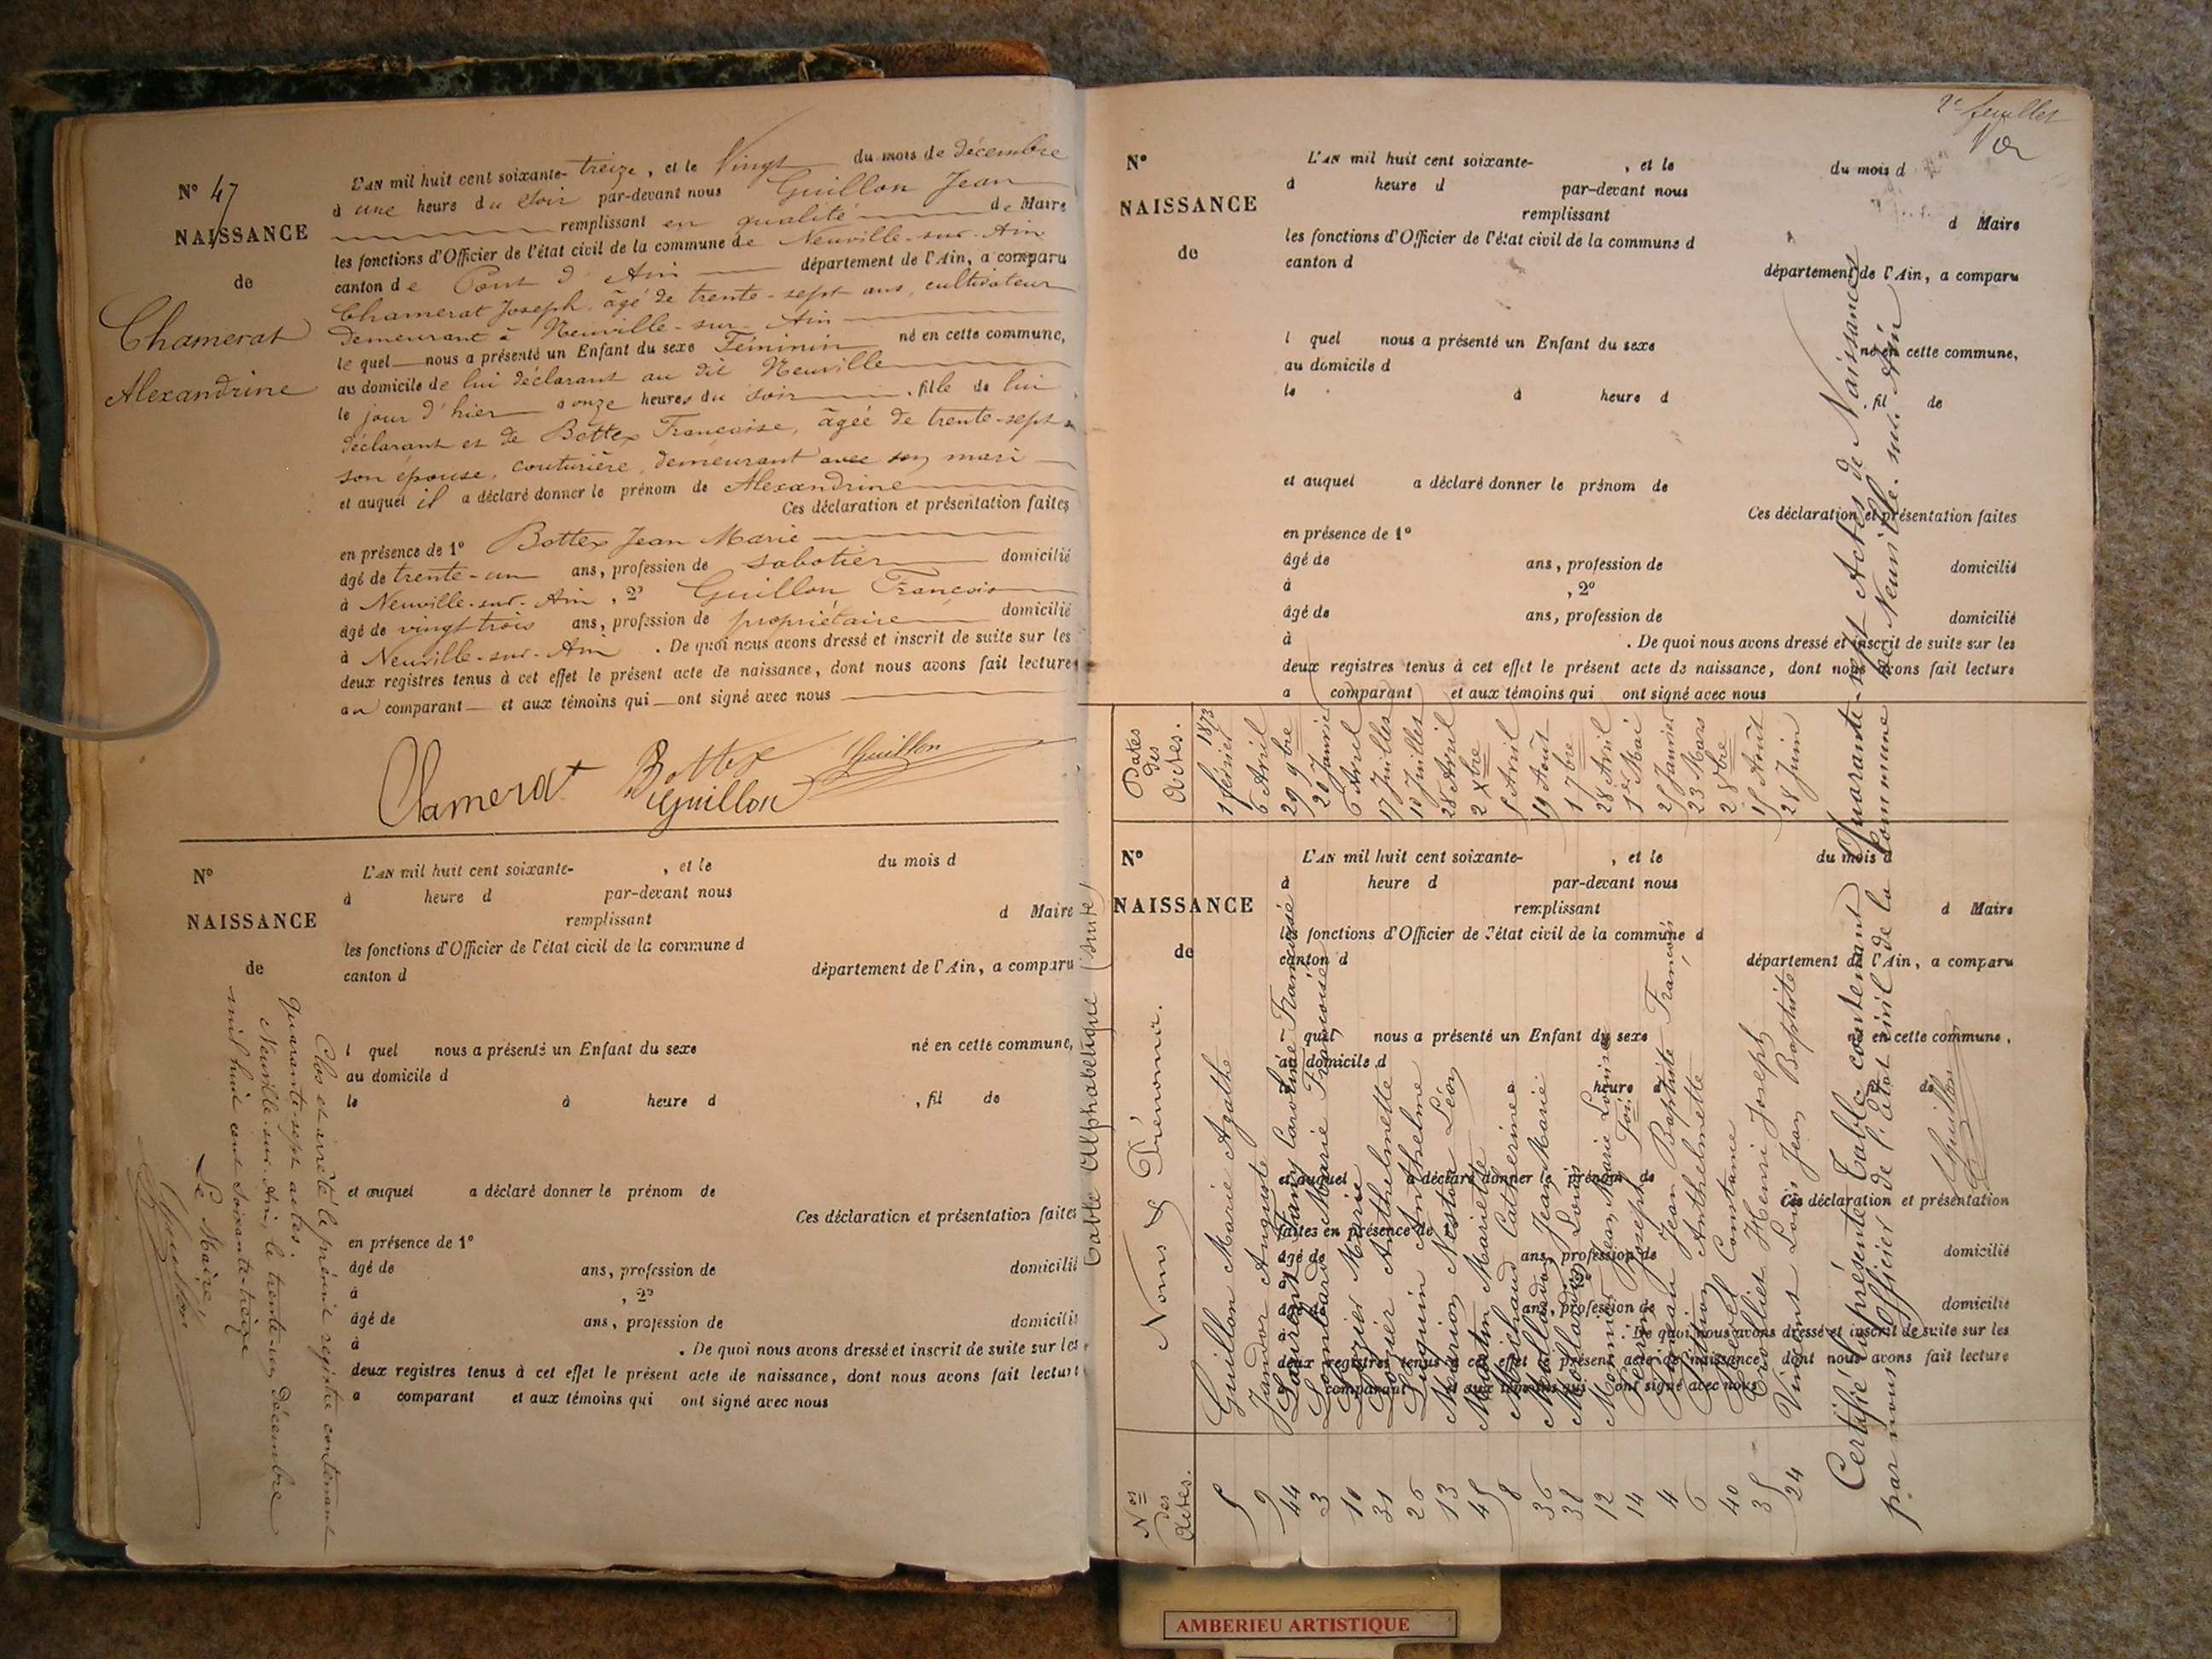 N° 47
NAISSANCE
de
Chamerat
Alexandrine
L'AN mil huit cent soixante-treize, et le Vingt du mois de décembre
à une heure du soir par-devant nous Guillon Jean
remplissant en qualité de Maire
les fonctions d'Officier de l'état civil de la commune de Neuville-sur-Ain
canton de Pont d'Ain département de l'Ain, a comparu
Chamerat Joseph, âgé de trente-sept ans, cultivateur
demeurant à Neuville-sur-Ain
le quel nous a présenté un Enfant du sexe Féminin né en cette commune,
au domicile de lui déclarant au dit Neuville
le jour d'hier à onze heures du soir, fille de lui
déclarant et de Bottex Françoise, âgée de trente-sept
son épouse, couturière, demeurant avec son mari
et auquel il a déclaré donner le prénom de Alexandrine
Ces déclaration et présentation faites
en présence de 1° Bottex Jean Marie
âgé de trente-un ans, profession de sabotier domicilié
à Neuville-sur-Ain, 2° Guillon François
âgé de vingt trois ans, profession de propriétaire domicilié
à Neuville-sur-Ain. De quoi nous avons dressé et inscrit de suite sur les
deux registres tenus à cet effet le présent acte de naissance, dont nous avons fait lecture
au comparant et aux témoins qui ont signé avec nous
Chamerat Bottex Guillon
Guillon
N°
NAISSANCE
de
L'AN mil huit cent soixante- , et le du mois d
à heure d par-devant nous
remplissant d Maire
les fonctions d'Officier de l'état civil de la commune d
canton d département de l'Ain, a comparu
l quel nous a présenté un Enfant du sexe né en cette commune,
au domicile d
le à heure d , fil de
et auquel a déclaré donner le prénom de
Ces déclaration et présentation faites
en présence de 1°
âgé de ans, profession de domicilié
à , 2°
âgé de ans, profession de domicilié
à . De quoi nous avons dressé et inscrit de suite sur les
deux registres tenus à cet effet le présent acte de naissance, dont nous avons fait lecture
a comparant et aux témoins qui ont signé avec nous
Clos et arrêté le présent registre contenant
quarante-sept actes.
Neuville-sur-Ain, le trente-un décembre
mil huit cent soixante-treize
Le Maire,
Guillon
2e feuillet
N°
NAISSANCE
de
L'AN mil huit cent soixante- , et le du mois d
à heure d par-devant nous
remplissant d Maire
les fonctions d'Officier de l'état civil de la commune d
canton d département de l'Ain, a comparu
l quel nous a présenté un Enfant du sexe né en cette commune,
au domicile d
le à heure d , fil de
et auquel a déclaré donner le prénom de
Ces déclaration et présentation faites
en présence de 1°
âgé de ans, profession de domicilié
à , 2°
âgé de ans, profession de domicilié
à . De quoi nous avons dressé et inscrit de suite sur les
deux registres tenus à cet effet le présent acte de naissance, dont nous avons fait lecture
a comparant et aux témoins qui ont signé avec nous
N°
NAISSANCE
de
L'AN mil huit cent soixante- , et le du mois d
à heure d par-devant nous
remplissant d Maire
les fonctions d'Officier de l'état civil de la commune d
canton d département de l'Ain, a comparu
quel nous a présenté un Enfant du sexe né en cette commune,
au domicile d
heure d de
et auquel a déclaré donner le prénom de
Ces déclaration et présentation
faites en présence de
âgé de ans, profession de domicilié
âgé de ans, profession de domicilié
De quoi nous avons dressé et inscrit de suite sur les
deux registres tenus à cet effet le présent acte de naissance, dont nous avons fait lecture
comparant et aux témoins qui ont signé avec nous
Table Alphabétique (suite)
Nos des Actes. Noms & Prénoms. Dates des Actes.
5 Guillon Marie Agathe 1 février 1873
9 Jandor Auguste 6 Avril
44 Laurent Fany Caroline Françoise 29 9bre
3 Lombard Marie Françoise 20 Janvier
10 Lozier Marie 6 Avril
31 Lozier Anthelmette 17 Juillet
26 Luquin Anthelme 10 Juillet
13 Marion Nestor Léon 28 Avril
45 Martin Mariette 2 Xbre
8 Michaud Catherine 5 Avril
36 Mollard Jean Marie 19 Août
38 Mollard Louis 1 7bre
12 Monnier Jean Marie Louis 28 Avril
14 Joseph 1er Mai
4 Jean Baptiste François 25 Janvier
6 Anthelmette 23 Mars
40 Constance 28 8bre
35 Trolliet Henri Joseph 15 Août
24 Vincent Louis Jean Baptiste 28 Juin
Certifié la présente Table contenant Quarante-sept Actes de Naissances
par nous Officier de l'état civil de la Commune de Neuville-sur-Ain
Guillon
AMBERIEU ARTISTIQUE